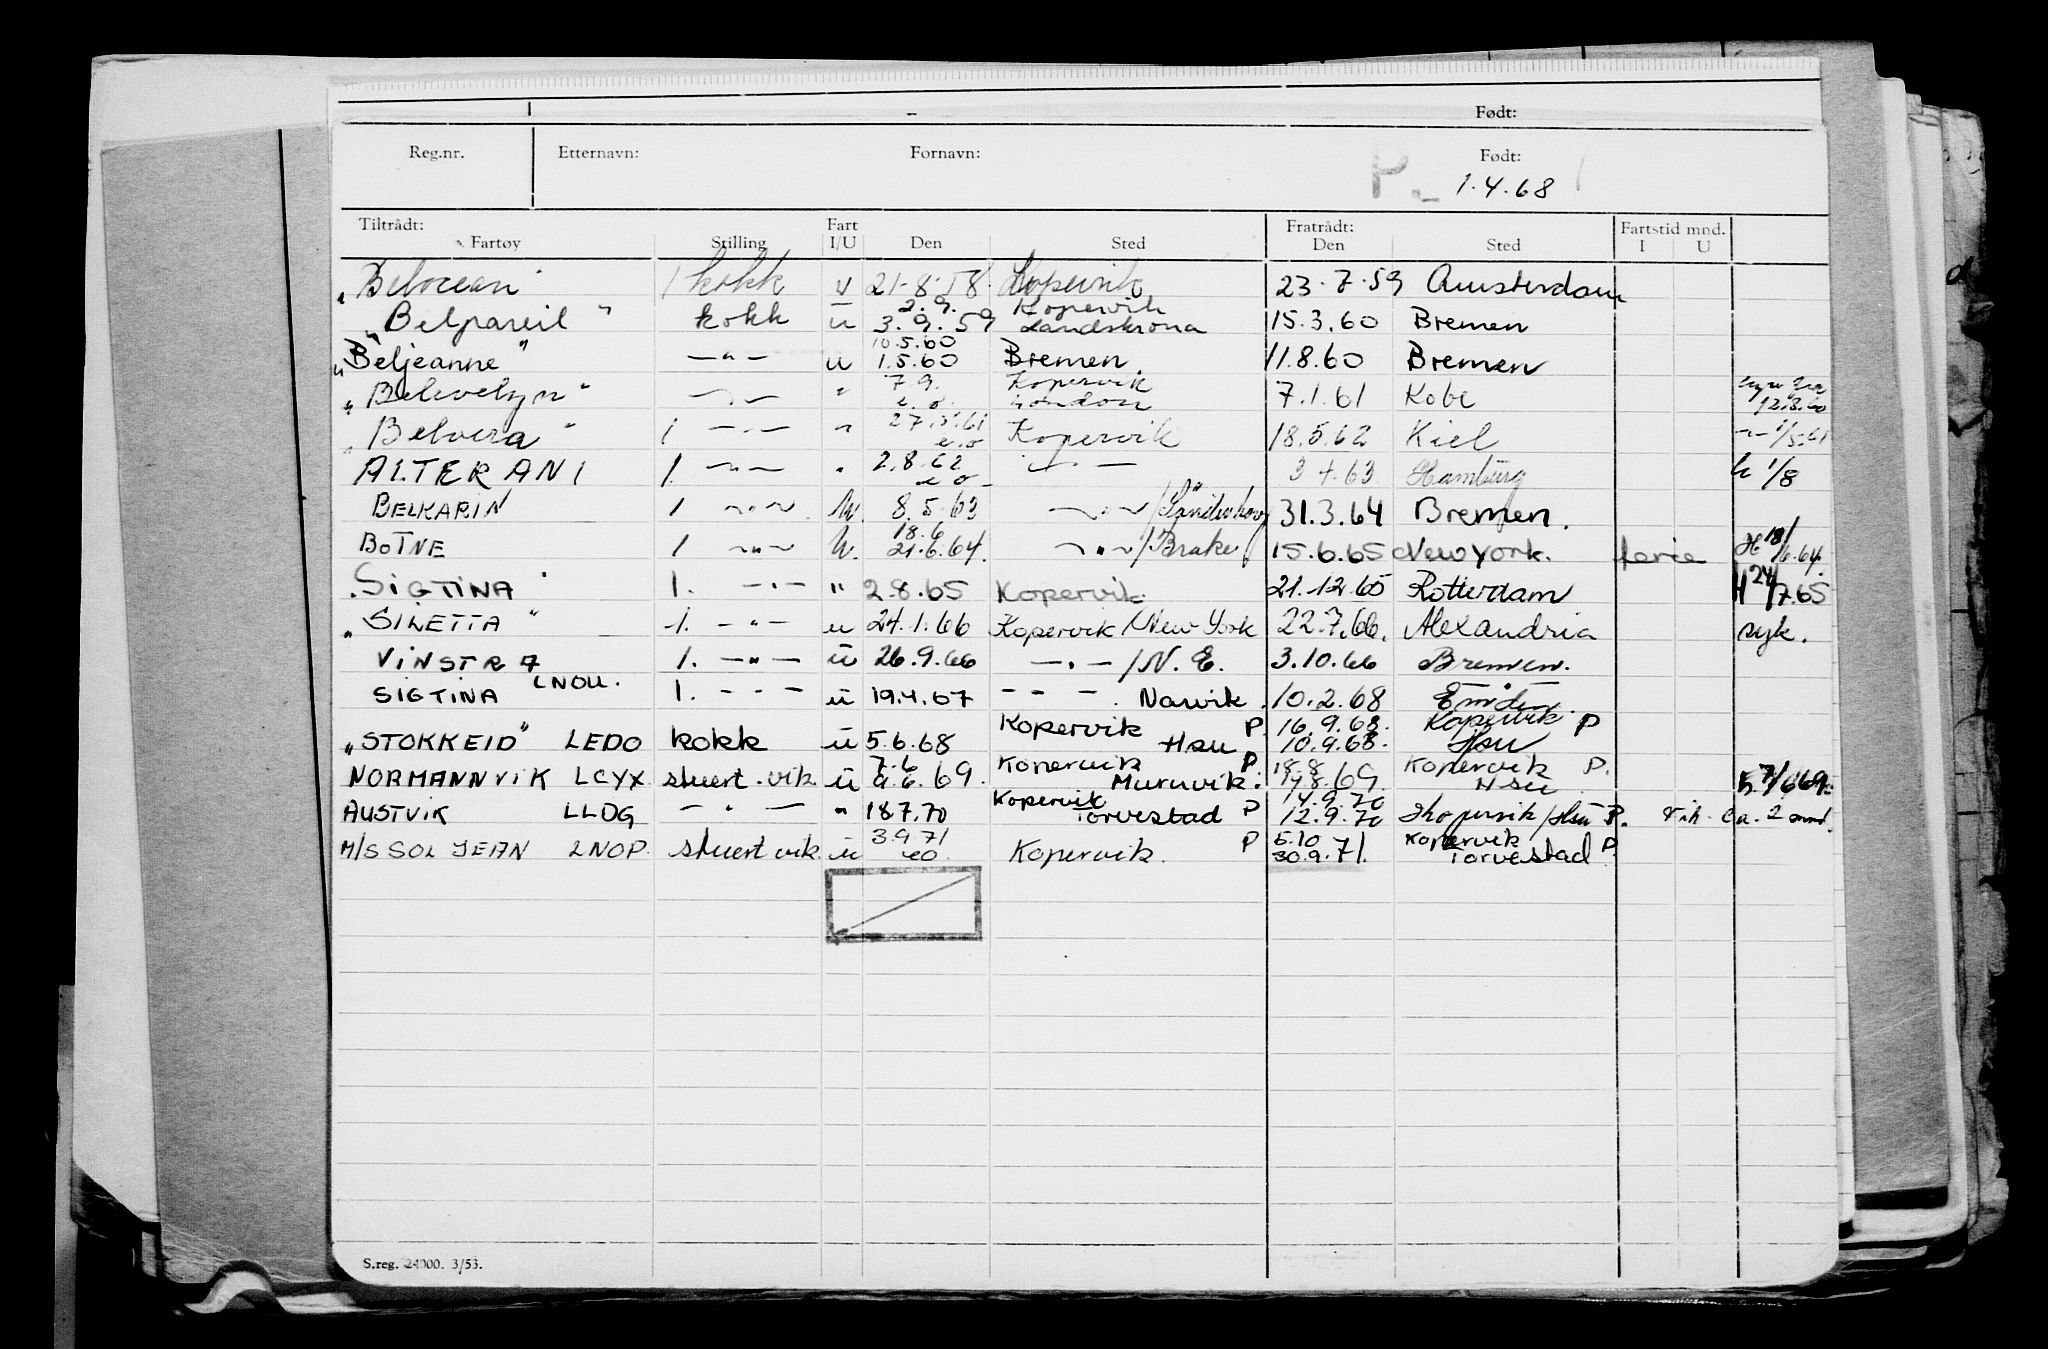 Født:
Reg.nr. Etternavn: Fornavn: Født:
P. 1.4.68
Tiltrådt: Fart Fratrådt: Fartstid mnd.
Fartøy Stilling I/U Den Sted Den Sted I U
"Belocean" 1 kokk u 21-8-58. Kopervik 23.7.59 Amsterdam
2.9. Kopervik
"Belpareil" kokk u 3.9.59 Landskrona 15.3.60 Bremen
10.5.60
"Beljeanne" — " — u 1.5.60 Bremen. 11.8.60 Bremen
7.9. Kopervik
"Belevelyn" — " — " e.o. London 7.1.61 Kobe 12.8.60
27.5.61
"Belvera" 1 — " — " e.o Kopervik 18.5.62 Kiel
2.8.62
ALTERANI 1. — " — " e o — " — 3 4.63 Hamburg h 1/8
BELKARIN 1 — " — U. 8.5.63 — " — / 31.3.64 Bremen.
18.6
BOTNE 1 — " — U. 21.6.64. — " — /Brake 15.6.65 New York. ferie H 18/6.64.
"SIGTINA" 1. — " — " 2.8.65 Kopervik. 21.12.65 Rotterdam H 24/7.65
"SILETTA" 1. — " — u 24.1.66 Kopervik /New York 22.7.66. Alexandria syk.
VINSTRA 1. — " — u 26.9.66 — " — /N. E. 3.10.66 Bremen.
SIGTINA LNOU. 1. — " — u 19.4.67 — " — Narvik. 10.2.68 Emden.
Kopervik P. 16.9.68. Kopervik P
"STOKKEID" LEDO kokk u 5.6.68 Hsu 10.9.68. Hsu
7.6 Kopervik P 18.8 Kopervik P.
NORMANNVIK LCYX stuert.vik. u 6.6.69. Muruvik. 14.8.69. Hsu
Kopervik 14.9.70
AUSTVIK LLDG — " — " 18.7.70 Torvestad P 12.9.70 Kopervik/Hsu P. vik. ca. 2 mnd.
3.9.71 5.10 Kopervik P
M/S SOL JEAN LNOP. stuert vik. u eo Kopervik. P 30.9.71. Torvestad
S.reg. 24000. 3/53.